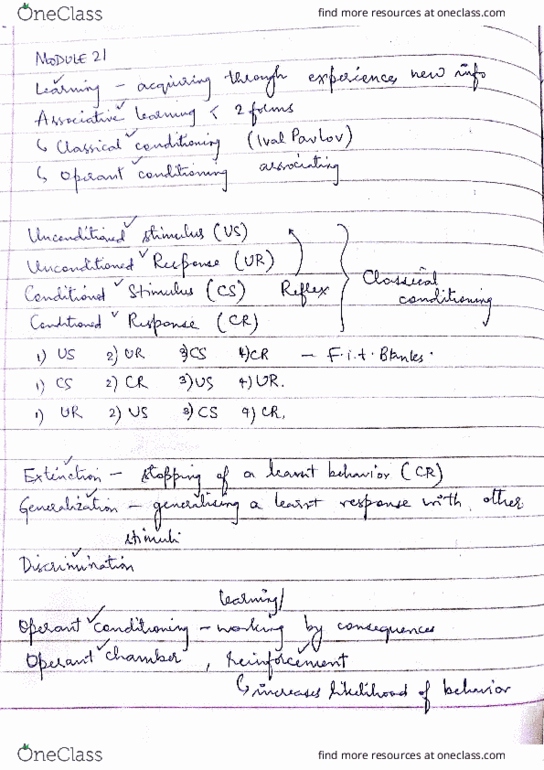 OneClass
find more resources at oneclass.com
MODULE 21
Learning – acquiring through experiences new info
Associative learning < 2 forms
↳ Classical conditioning (Ival Pavlov)
↳ Operant conditioning associating
Unconditioned stimulus (US)
Unconditioned Response (UR)
Conditioned Stimulus (CS) Reflex
Classical conditioning
Conditioned Response (CR)
1) US 2) UR 3) CS 4) CR – F.i.t. Blanks.
1) CS 2) CR 3) US 4) UR.
1) UR 2) US 3) CS 4) CR,
Extinction – stopping of a learnt behavior (CR)
Generalization – generalising a learnt response with other
stimuli
Discrimination
learning/
Operant conditioning – working by consequences
Operant chamber, reinforcement
↳ increases likelihood of behavior
OneClass
find more resources at oneclass.com